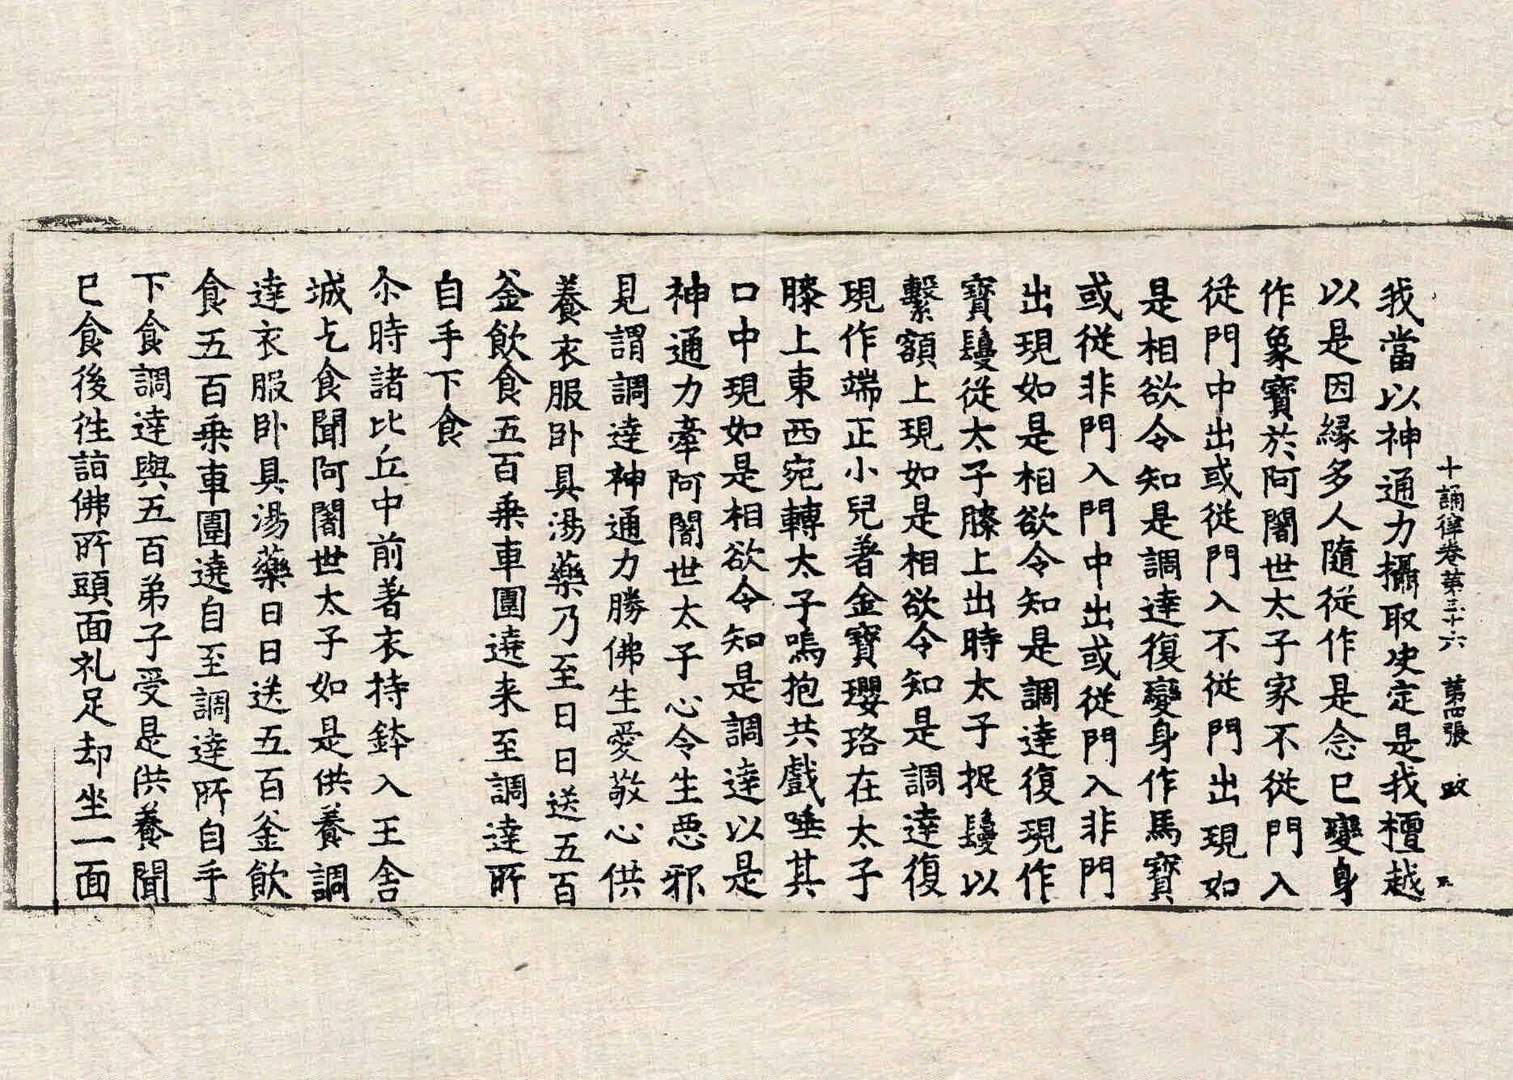 十誦律卷第三十六 第四張 政
我當以神通力攝取决定是我檀越
以是因緣多人隨從作是念已變身
作象寶於阿闍世太子家不從門入
從門中出或從門入不從門出現如
是相欲令知是調達復變身作馬寶
或從非門入門中出或從門入非門
出現如是相欲令知是調達復現作
寶鬘從太子膝上出時太子捉鬘以
繫額上現如是相欲令知是調達復
現作端正小兒著金寶瓔珞在太子
膝上東西宛轉太子嗚抱共戲唾其
口中現如是相欲令知是調達以是
神通力牽阿闍世太子心令生惡邪
見謂調達神通力勝佛生愛敬心供
養衣服卧具湯藥乃至日日送五百
釜飲食五百乘車圍遶来至調達所
自手下食
尒時諸比丘中前著衣持鉢入王舍
城乞食聞阿闍世太子如是供養調
達衣服卧具湯藥日日送五百釜飲
食五百乘車圍遶自至調達所自手
下食調達與五百弟子受是供養聞
已食後往詣佛所頭面礼足却坐一面